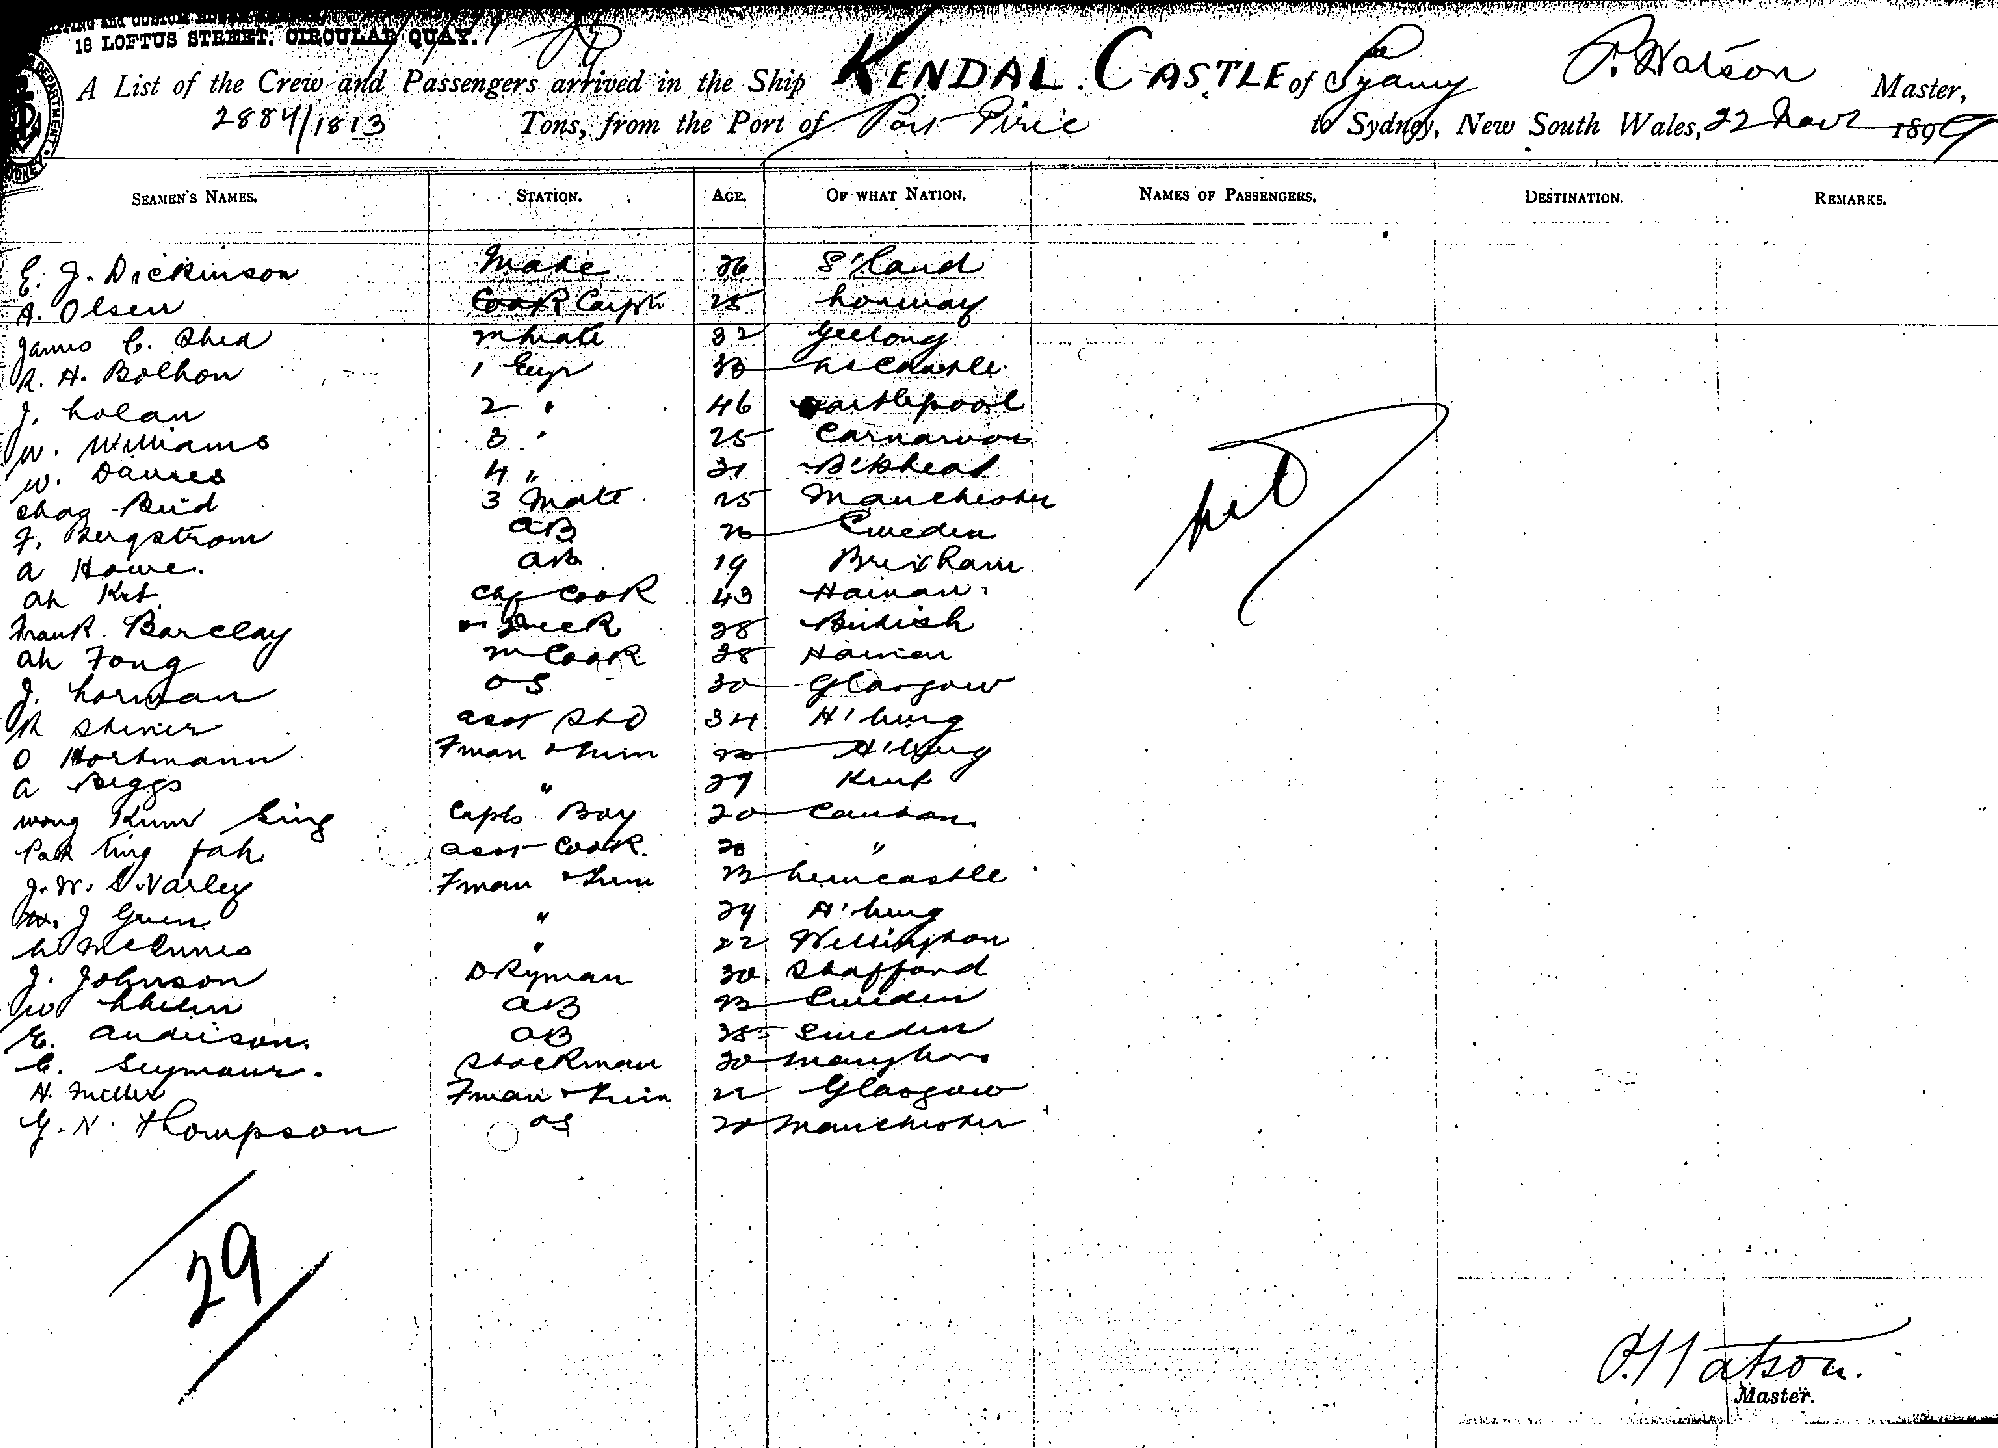 18 LOFTUS STREET. CIRCULAR QUAY.
A List of the Crew and Passengers arrived in the Ship KENDAL CASTLE of P. Watson Master,
2884/1813 Tons, from the Port of Port Pirie to Sydney, New South Wales, 22 1899
SEAMEN'S NAMES. STATION. AGE. OF WHAT NATION. NAMES OF PASSENGERS. DESTINATION. REMARKS.
E. J. Dickinson Mate 36 S'land
A. Olsen Cook Carptr 25 Norway
James C. Shea mate 32 Geelong
R. H. Bolhon 1 Engr Ncastle
J. Nolan 2 " 46 artlepool
W. Williams 3 " 25 Carnarvon
W. Davies 4 " 31 Bkhead
Chas Reid 3 Mate 25 Manchester
F. Bergstrom AB Sweden
A Howe. AB 19 Brixham
Ah Kit Chf Cook 43 Hainan
Frank Barclay 28 British
Ah Fong m Cook 38 Hainan
J. Norman OS 30 Glasgow
Shiner asst Std 34 H'burg
O Hortmann Fman & Trim H'burg
A Biggs " 27 Kent
Wong King Capts Boy 20 Canton
asst Cook "
J. W. S. Varley Fman & Trim 23 Newcastle
J Green " 24 H'burg
McInnes " 22 Wellington
J. Johnson Dkyman 30 Stafford
AB 23 Sweden
E. Anderson. AB 25 Sweden
C. Seymour. Stockman 30 Marybro
H. Miller Fman & Trim 22 Glasgow
G. N. Thompson OS 20 Manchester
29
P. Watson.
Master.